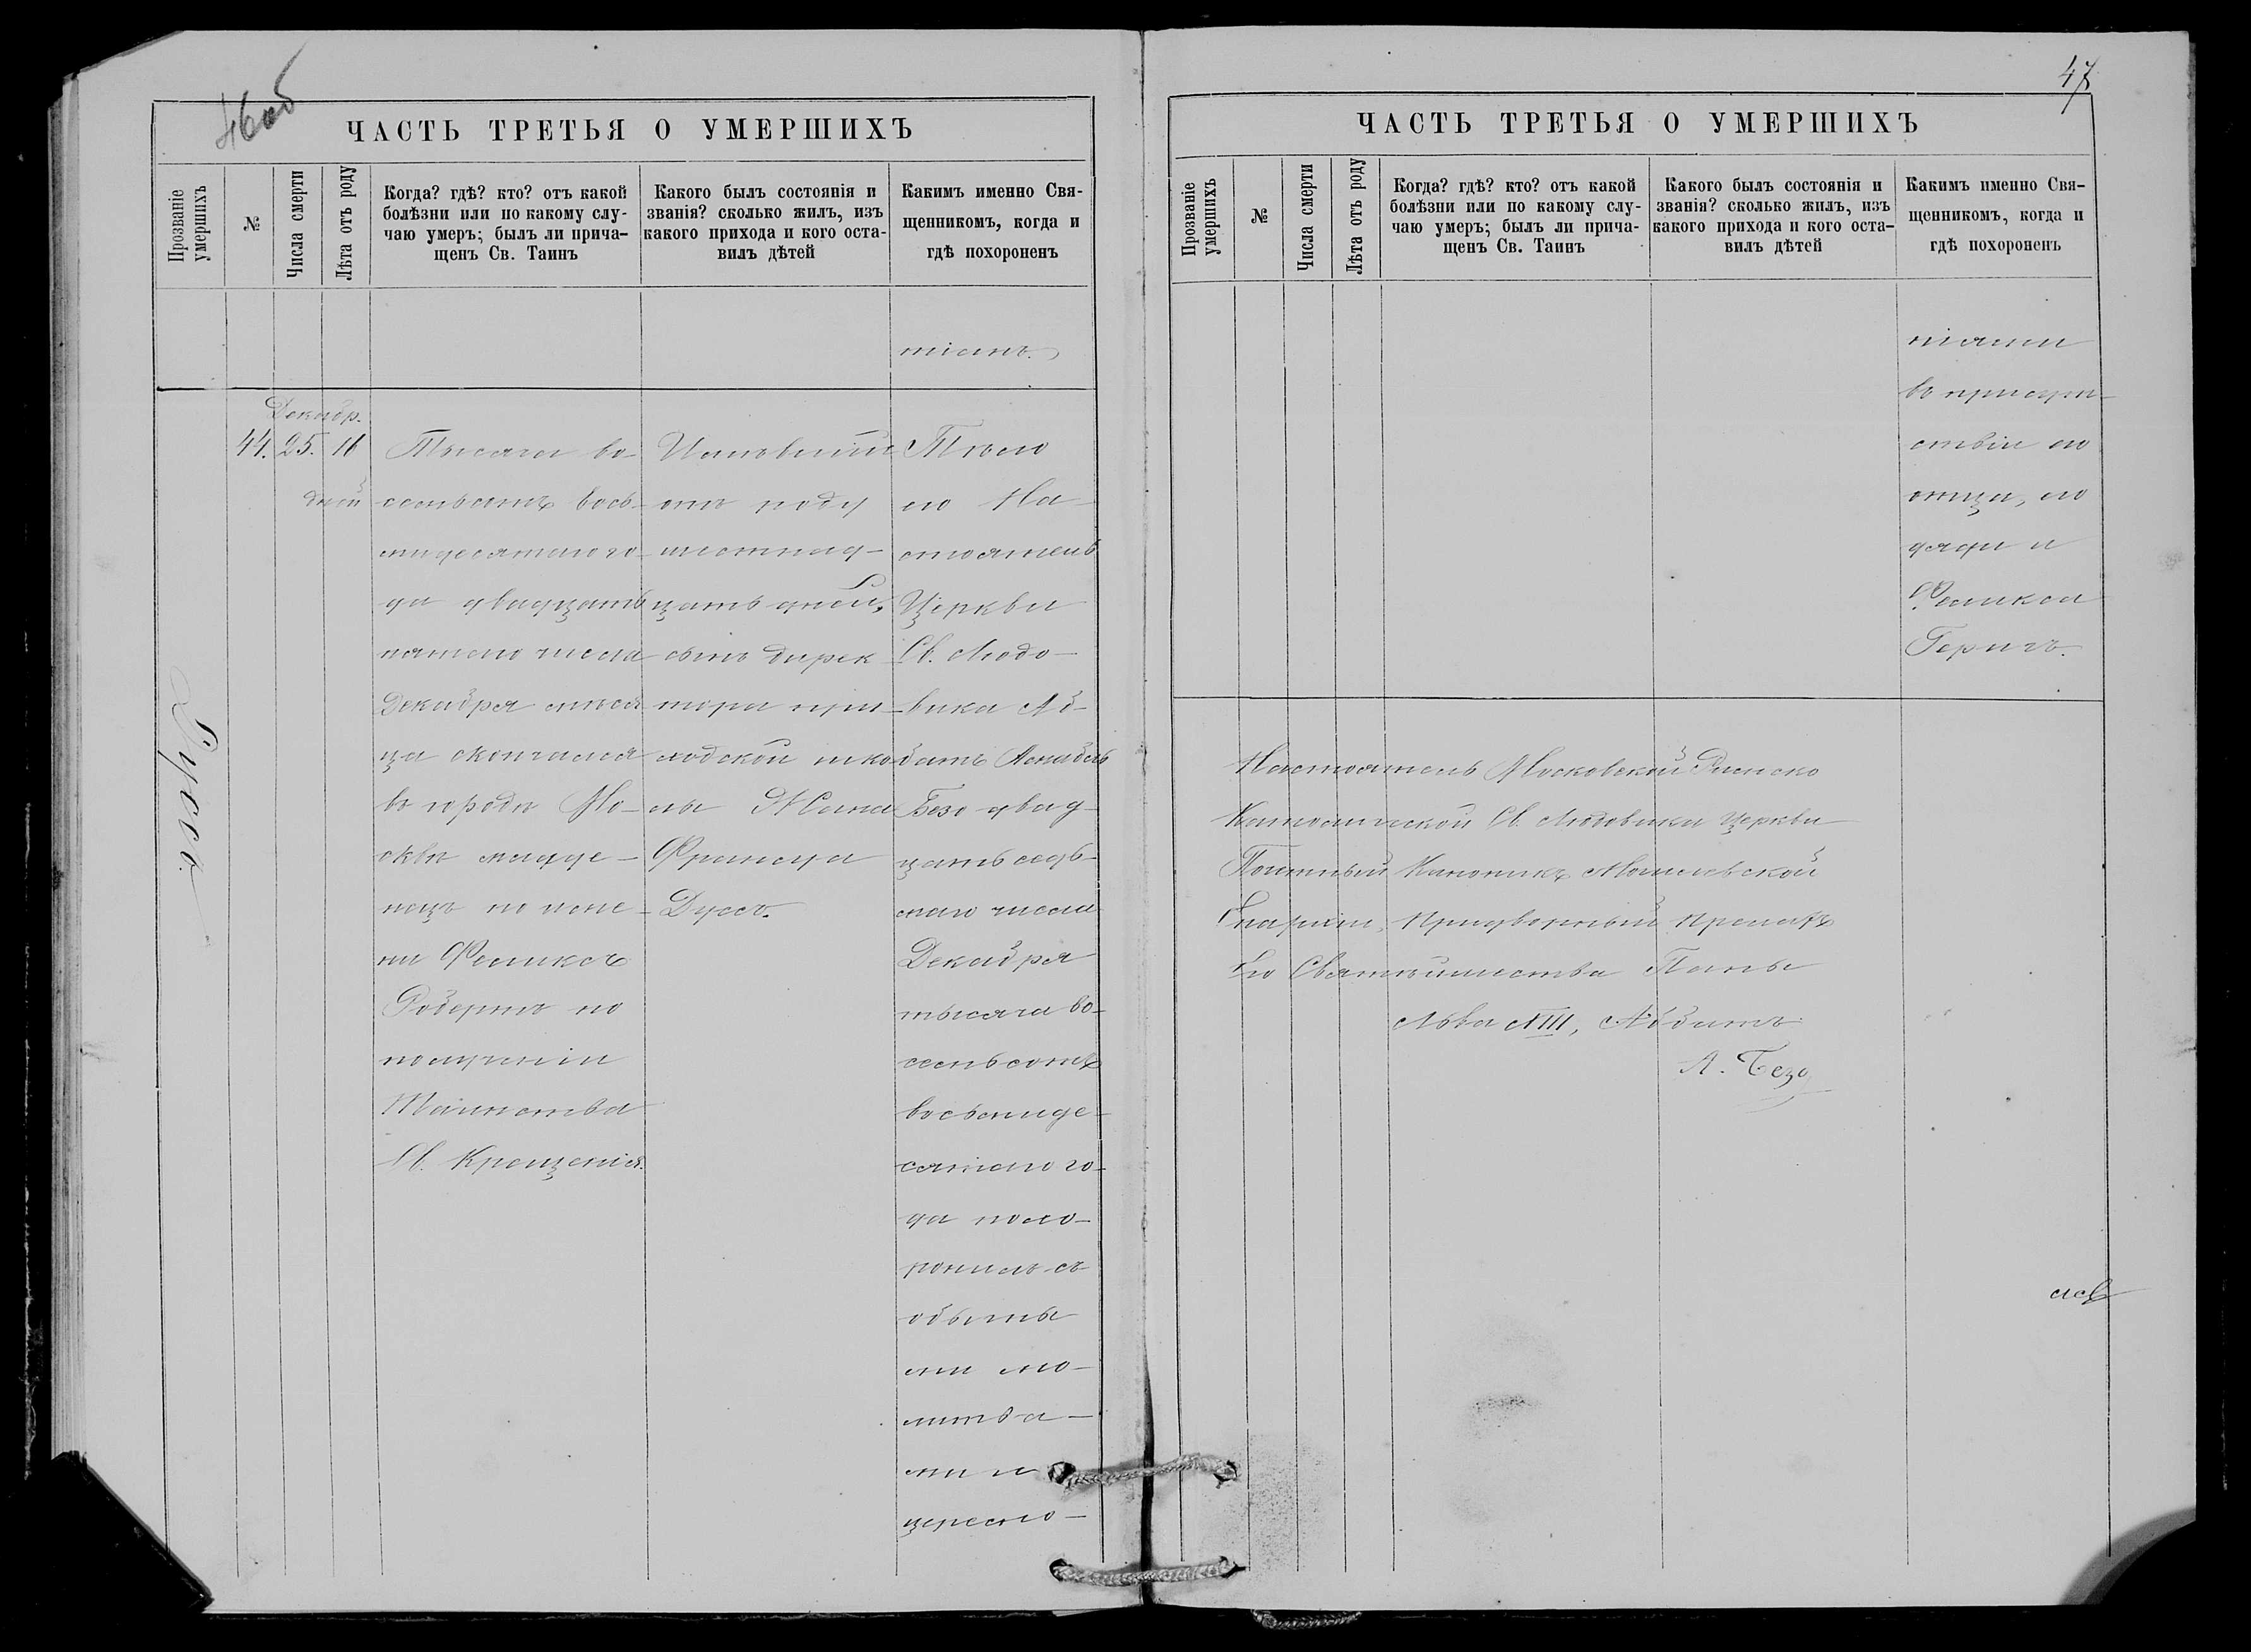 46об
ЧАСТЬ ТРЕТЬЯ О УМЕРШИХЪ
Прозваніе умершихъ
№
Числа смерти
Лѣта отъ роду
Когда? гдѣ? кто? отъ какой
болѣзни или по какому слу-
чаю умеръ; былъ ли прича-
щенъ Св. Таинъ
Какого былъ состоянія и
званія? сколько жилъ, изъ
какого прихода и кого оста-
вилъ дѣтей
Какимъ именно Свя-
щенникомъ, когда и
гдѣ похороненъ
тіанъ.
Дуссъ.
Декабр.
44. 25. 16
дней
Тысяча во-
семьсотъ вось-
мидесятаго го-
да двадцать
пятаго числа
Декабря мѣся
ца скончался
въ городѣ Мо-
сквѣ младе-
нецъ по име-
ни Феликсъ
Робертъ по
полученіи
Таинства
Св. Крещенія.
Имѣвшій
отъ роду
шестнад-
цать дней,
сынъ дирек
тора при-
ходской шко
лы Жана
Франсуа
Дуссъ.
Тѣло
его На-
стоятель
Церкви
Св. Людо-
вика Аб-
батъ Аннибалъ
Безо двад-
цать седь-
маго числа
Декабря
тысяча во-
семьсотъ
восьмиде-
сятаго го-
да похо-
ронилъ съ
обычны
ми мо-
литва-
ми и
церемо-
47
ЧАСТЬ ТРЕТЬЯ О УМЕРШИХЪ
Прозваніе умершихъ
№
Числа смерти
Лѣта отъ роду
Когда? гдѣ? кто? отъ какой
болѣзни или по какому слу-
чаю умеръ; былъ ли прича-
щенъ Св. Таинъ
Какого былъ состоянія и
званія? сколько жилъ, изъ
какого прихода и кого оста-
вилъ дѣтей
Какимъ именно Свя-
щенникомъ, когда и
гдѣ похороненъ
ніями
въ присут-
ствіи его
отца, его
дяди и
Феликса
Геригъ.
Настоятель Московской Римско
Католической Св. Людовика Церкви
Почтный Каноникъ Могилевской
Епархіи, Придворный Прелатъ
Его Святѣйшества Папы
Льва XIII, Аббатъ
А. Безо